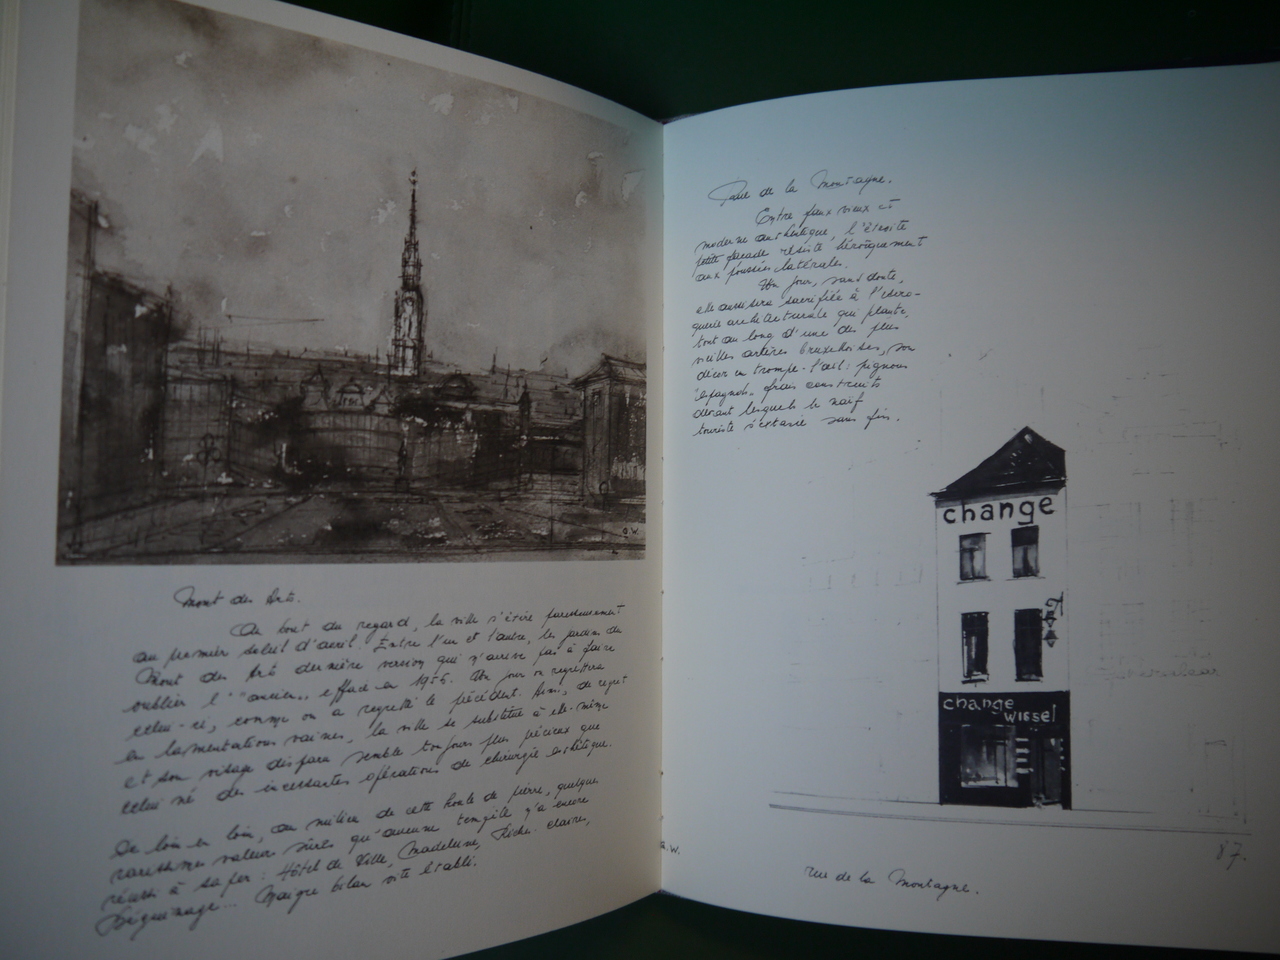 Mont des Arts.
Au bout du regard, la ville s'étire paresseusement
au premier soleil d'avril. Entre l'un et l'autre, les jardins du
Mont des Arts dernière version qui n'arrive pas à faire
oublier l'"ancien", effacé en 1955. Un jour on regrettera
celui-ci, comme on a regretté le précédent. Ainsi, de regret
en lamentations vaines, la ville se substitue à elle-même
et son visage disparu semble toujours plus précieux que
celui né des incessantes opérations de chirurgie esthétique.
De loin en loin, au milieu de cette houle de pierre, quelques
rarissimes valeurs sûres qu'aucune tempête n'a encore
réussi à saper : Hôtel de Ville, Madeleine, Riches-Claires,
Béguinage... Maigre bilan vite établi.
O.W.
Rue de la Montagne.
Entre faux vieux et
moderne authentique, l'étroite
petite façade résiste héroïquement
aux poussées latérales.
Un jour, sans doute,
elle aussi sera sacrifiée à l'escro-
querie architecturale qui plante,
tout au long d'une des plus
vieilles artères bruxelloises, son
décor en trompe-l'œil : pignons
espagnols, frais construits
devant lesquels le naïf
touriste s'extasie sans fin.
change
change
wissel
87.
W.
rue de la Montagne.